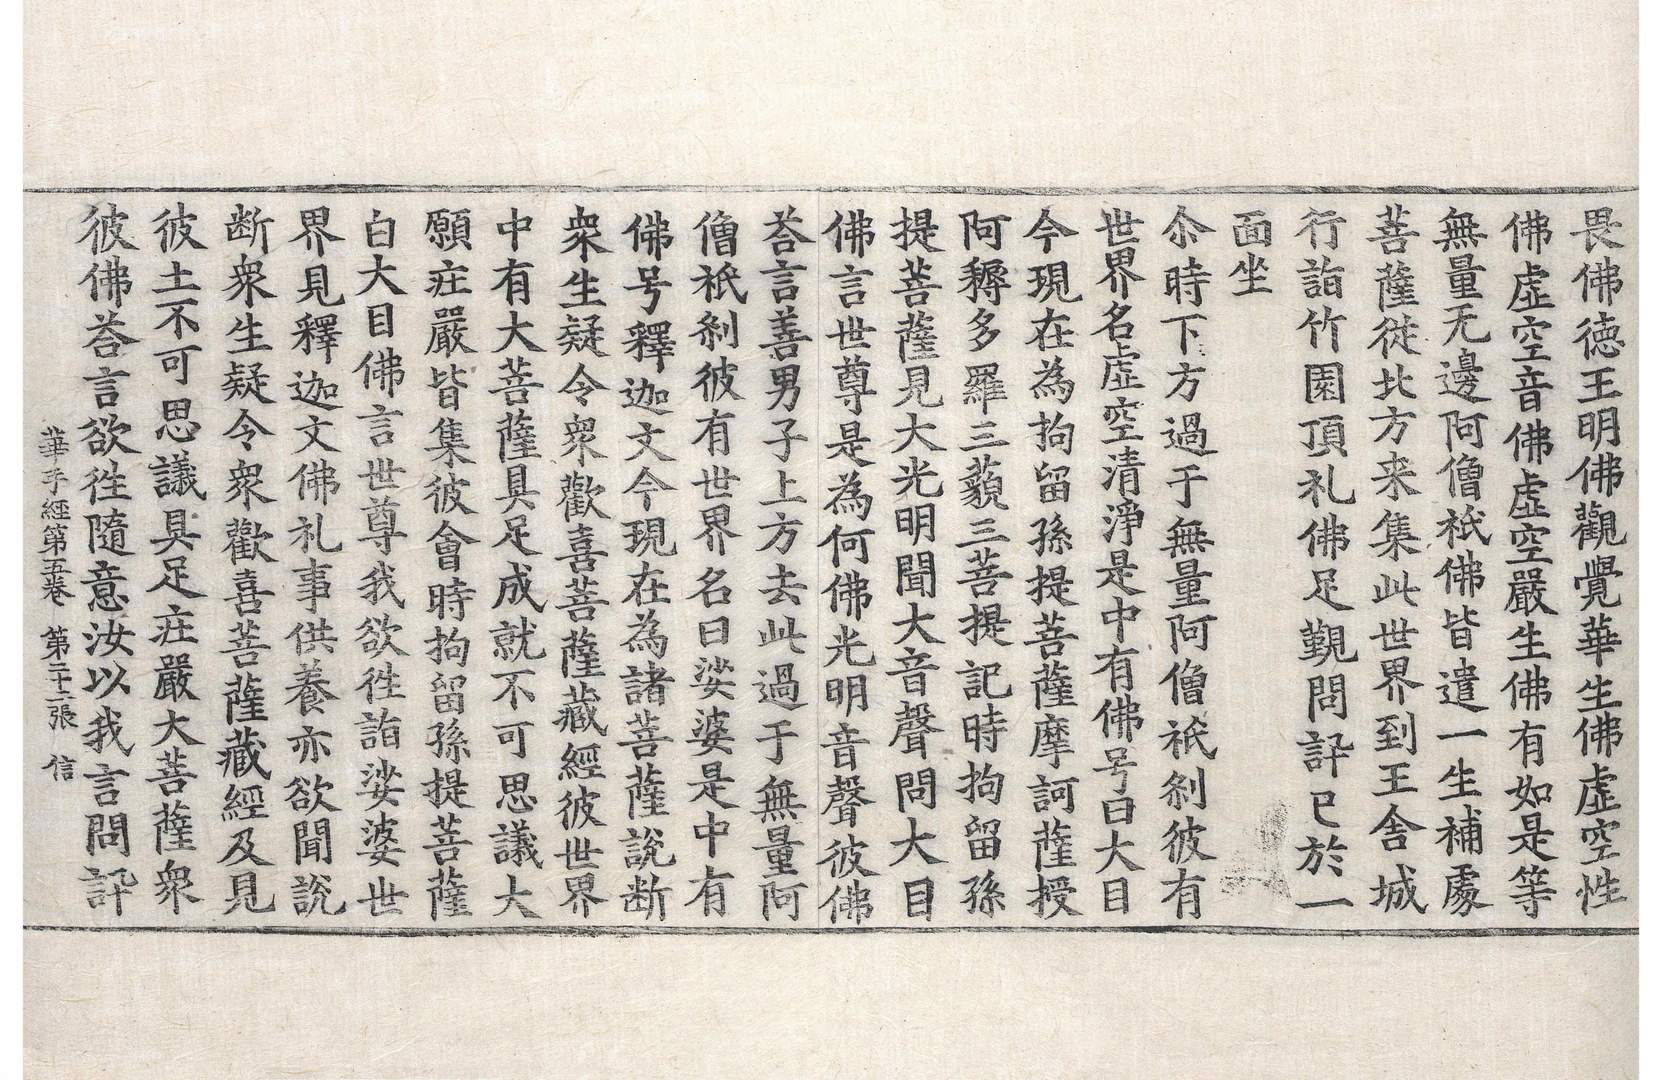 畏佛德王明佛觀覺華生佛虛空性
佛虛空音佛虛空嚴生佛有如是等
無量无邊阿僧祇佛皆遣一生補處
菩薩從北方来集此世界到王舍城
行詣竹園頂礼佛足覲問訊已於一
面坐
尒時下方過于無量阿僧祇刹彼有
世界名虛空清淨是中有佛号曰大目
今現在為拘留孫提菩薩摩訶薩授
阿耨多羅三藐三菩提記時拘留孫
提菩薩見大光明聞大音聲問大目
佛言世尊是為何佛光明音聲彼佛
荅言善男子上方去此過于無量阿
僧祇刹彼有世界名曰娑婆是中有
佛号釋迦文今現在為諸菩薩說斷
衆生疑令衆歡喜菩薩藏經彼世界
中有大菩薩具足成就不可思議大
願庄嚴皆集彼會時拘留孫提菩薩
白大目佛言世尊我欲徃詣娑婆世
界見釋迦文佛礼事供養亦欲聞說
断衆生疑令衆歡喜菩薩藏經及見
彼土不可思議具足庄嚴大菩薩衆
彼佛荅言欲徃隨意汝以我言問訊
華手經第五卷 第二十二張 信